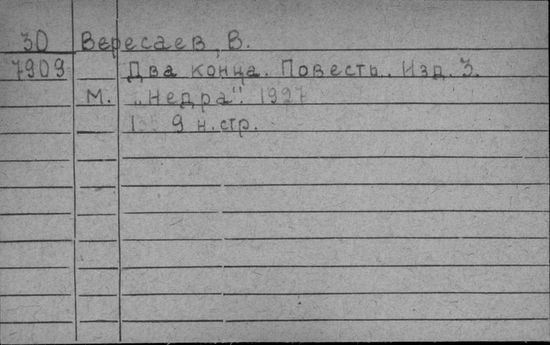 30 Вересаев, В.
7909 Два конца. Повесть. Изд. 3.
М. „Недра". 1927
9 н.стр.